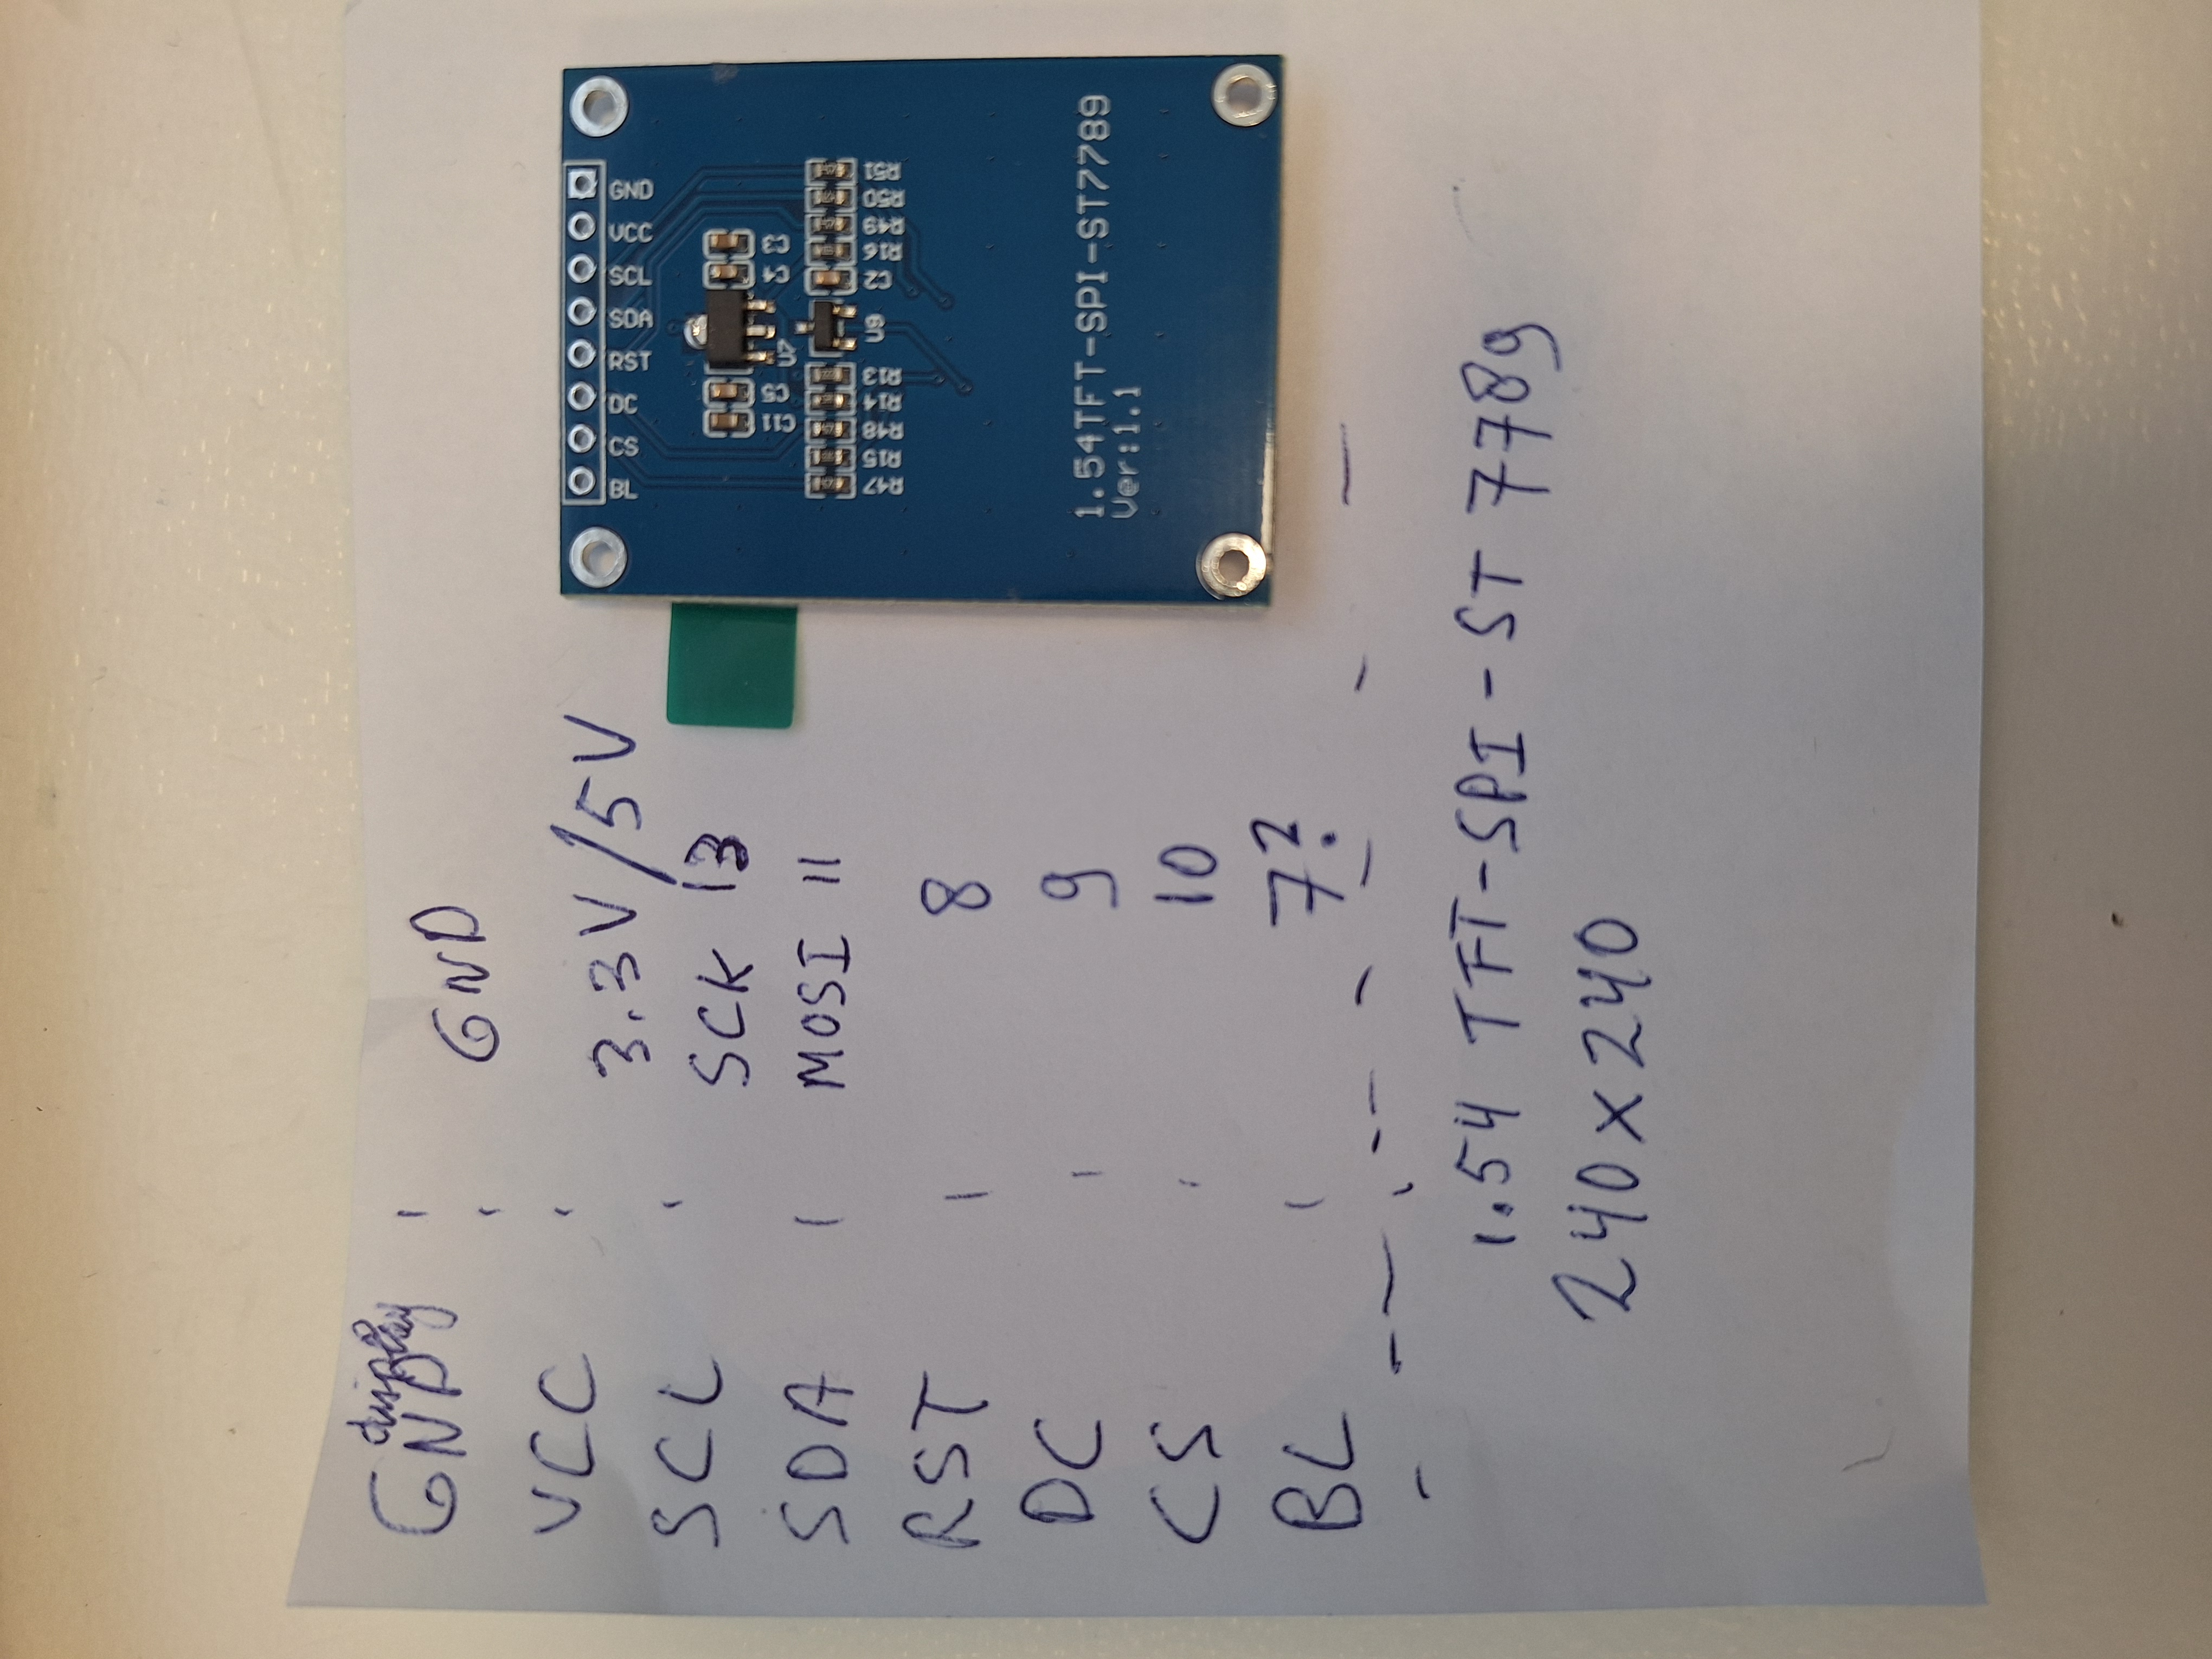 display
GND GND
VCC 3.3V/5V
SCL SCK 13
SDA MOSI 11
RST 8
DC 9
CS 10
BL 7?
1.54 TFT-SPI-ST 7789
240x240
BL CS DC RST SDA SCL VCC GND
C11 C5 U7 C4 C3
R47 R15 R48 R14 R13 U9 C2 R16 R49 R50 R51
1.54TFT-SPI-ST7789
Ver:1.1